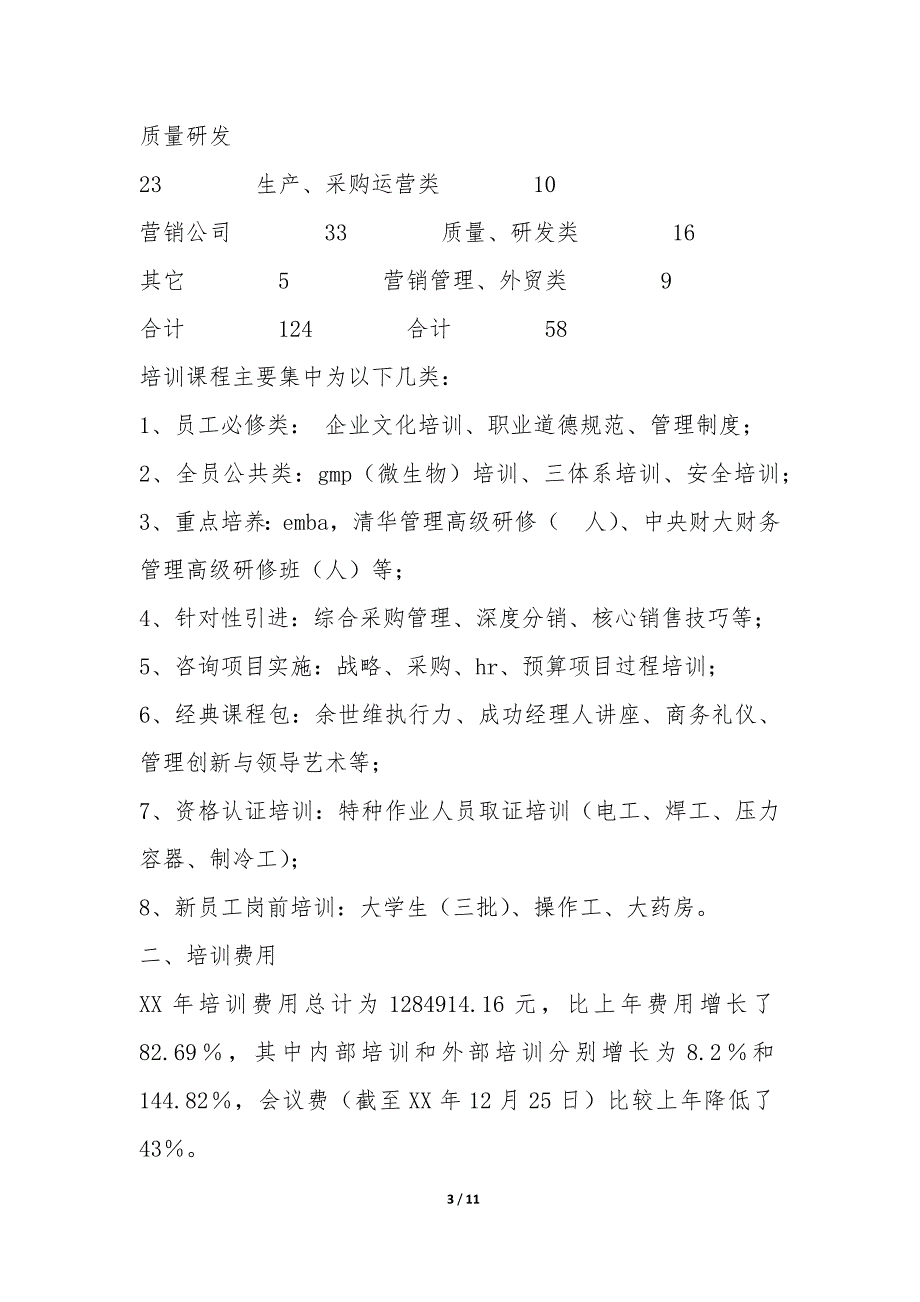 质量研发
23 生产、采购运营类 10
营销公司 33 质量、研发类 16
其它 5 营销管理、外贸类 9
合计 124 合计 58
培训课程主要集中为以下几类：
1、员工必修类： 企业文化培训、职业道德规范、管理制度；
2、全员公共类：gmp（微生物）培训、三体系培训、安全培训；
3、重点培养：emba，清华管理高级研修（ 人）、中央财大财务
管理高级研修班（人）等；
4、针对性引进：综合采购管理、深度分销、核心销售技巧等；
5、咨询项目实施：战略、采购、hr、预算项目过程培训；
6、经典课程包：余世维执行力、成功经理人讲座、商务礼仪、
管理创新与领导艺术等；
7、资格认证培训：特种作业人员取证培训（电工、焊工、压力
容器、制冷工）；
8、新员工岗前培训：大学生（三批）、操作工、大药房。
二、培训费用
XX 年培训费用总计为 1284914.16 元，比上年费用增长了
82.69％，其中内部培训和外部培训分别增长为 8.2％和
144.82％，会议费（截至 XX 年 12 月 25 日）比较上年降低了
43％。
3 / 11